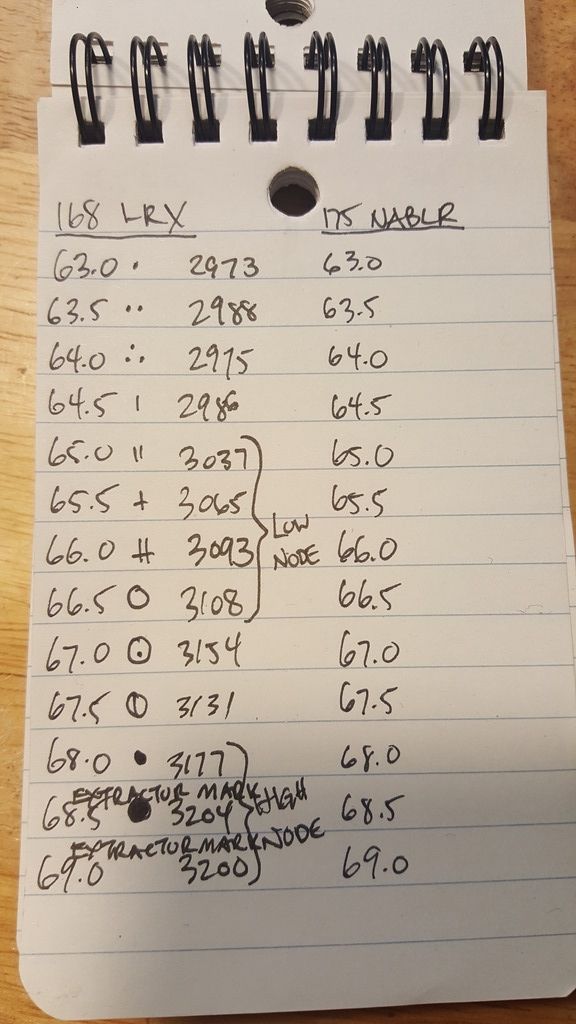 168 LRX 175 NABLR
63.0 · 2973 63.0
63.5 ·· 2988 63.5
64.0 ∴ 2975 64.0
64.5 | 2986 64.5
65.0 || 3037 65.0
65.5 + 3065 65.5
LOW
66.0 # 3093 NODE 66.0
66.5 O 3108 66.5
67.0 ⊙ 3154 67.0
67.5 ⦶ 3131 67.5
68.0 • 3177 68.0
EXTRACTOR MARK HIGH
68.5 ● 3204 68.5
EXTRACTOR MARK NODE
69.0 3200 69.0